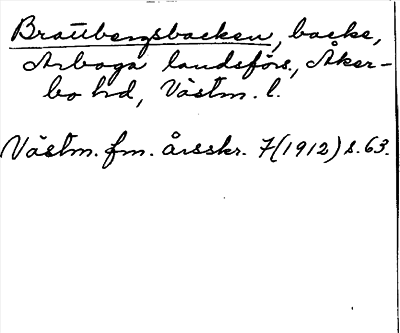 Braübergsbacken, backe,
Arboga landsförs., Åker-
bo hd, Västm. l.
Västm. fm. årsskr. 7(1912) s. 63.